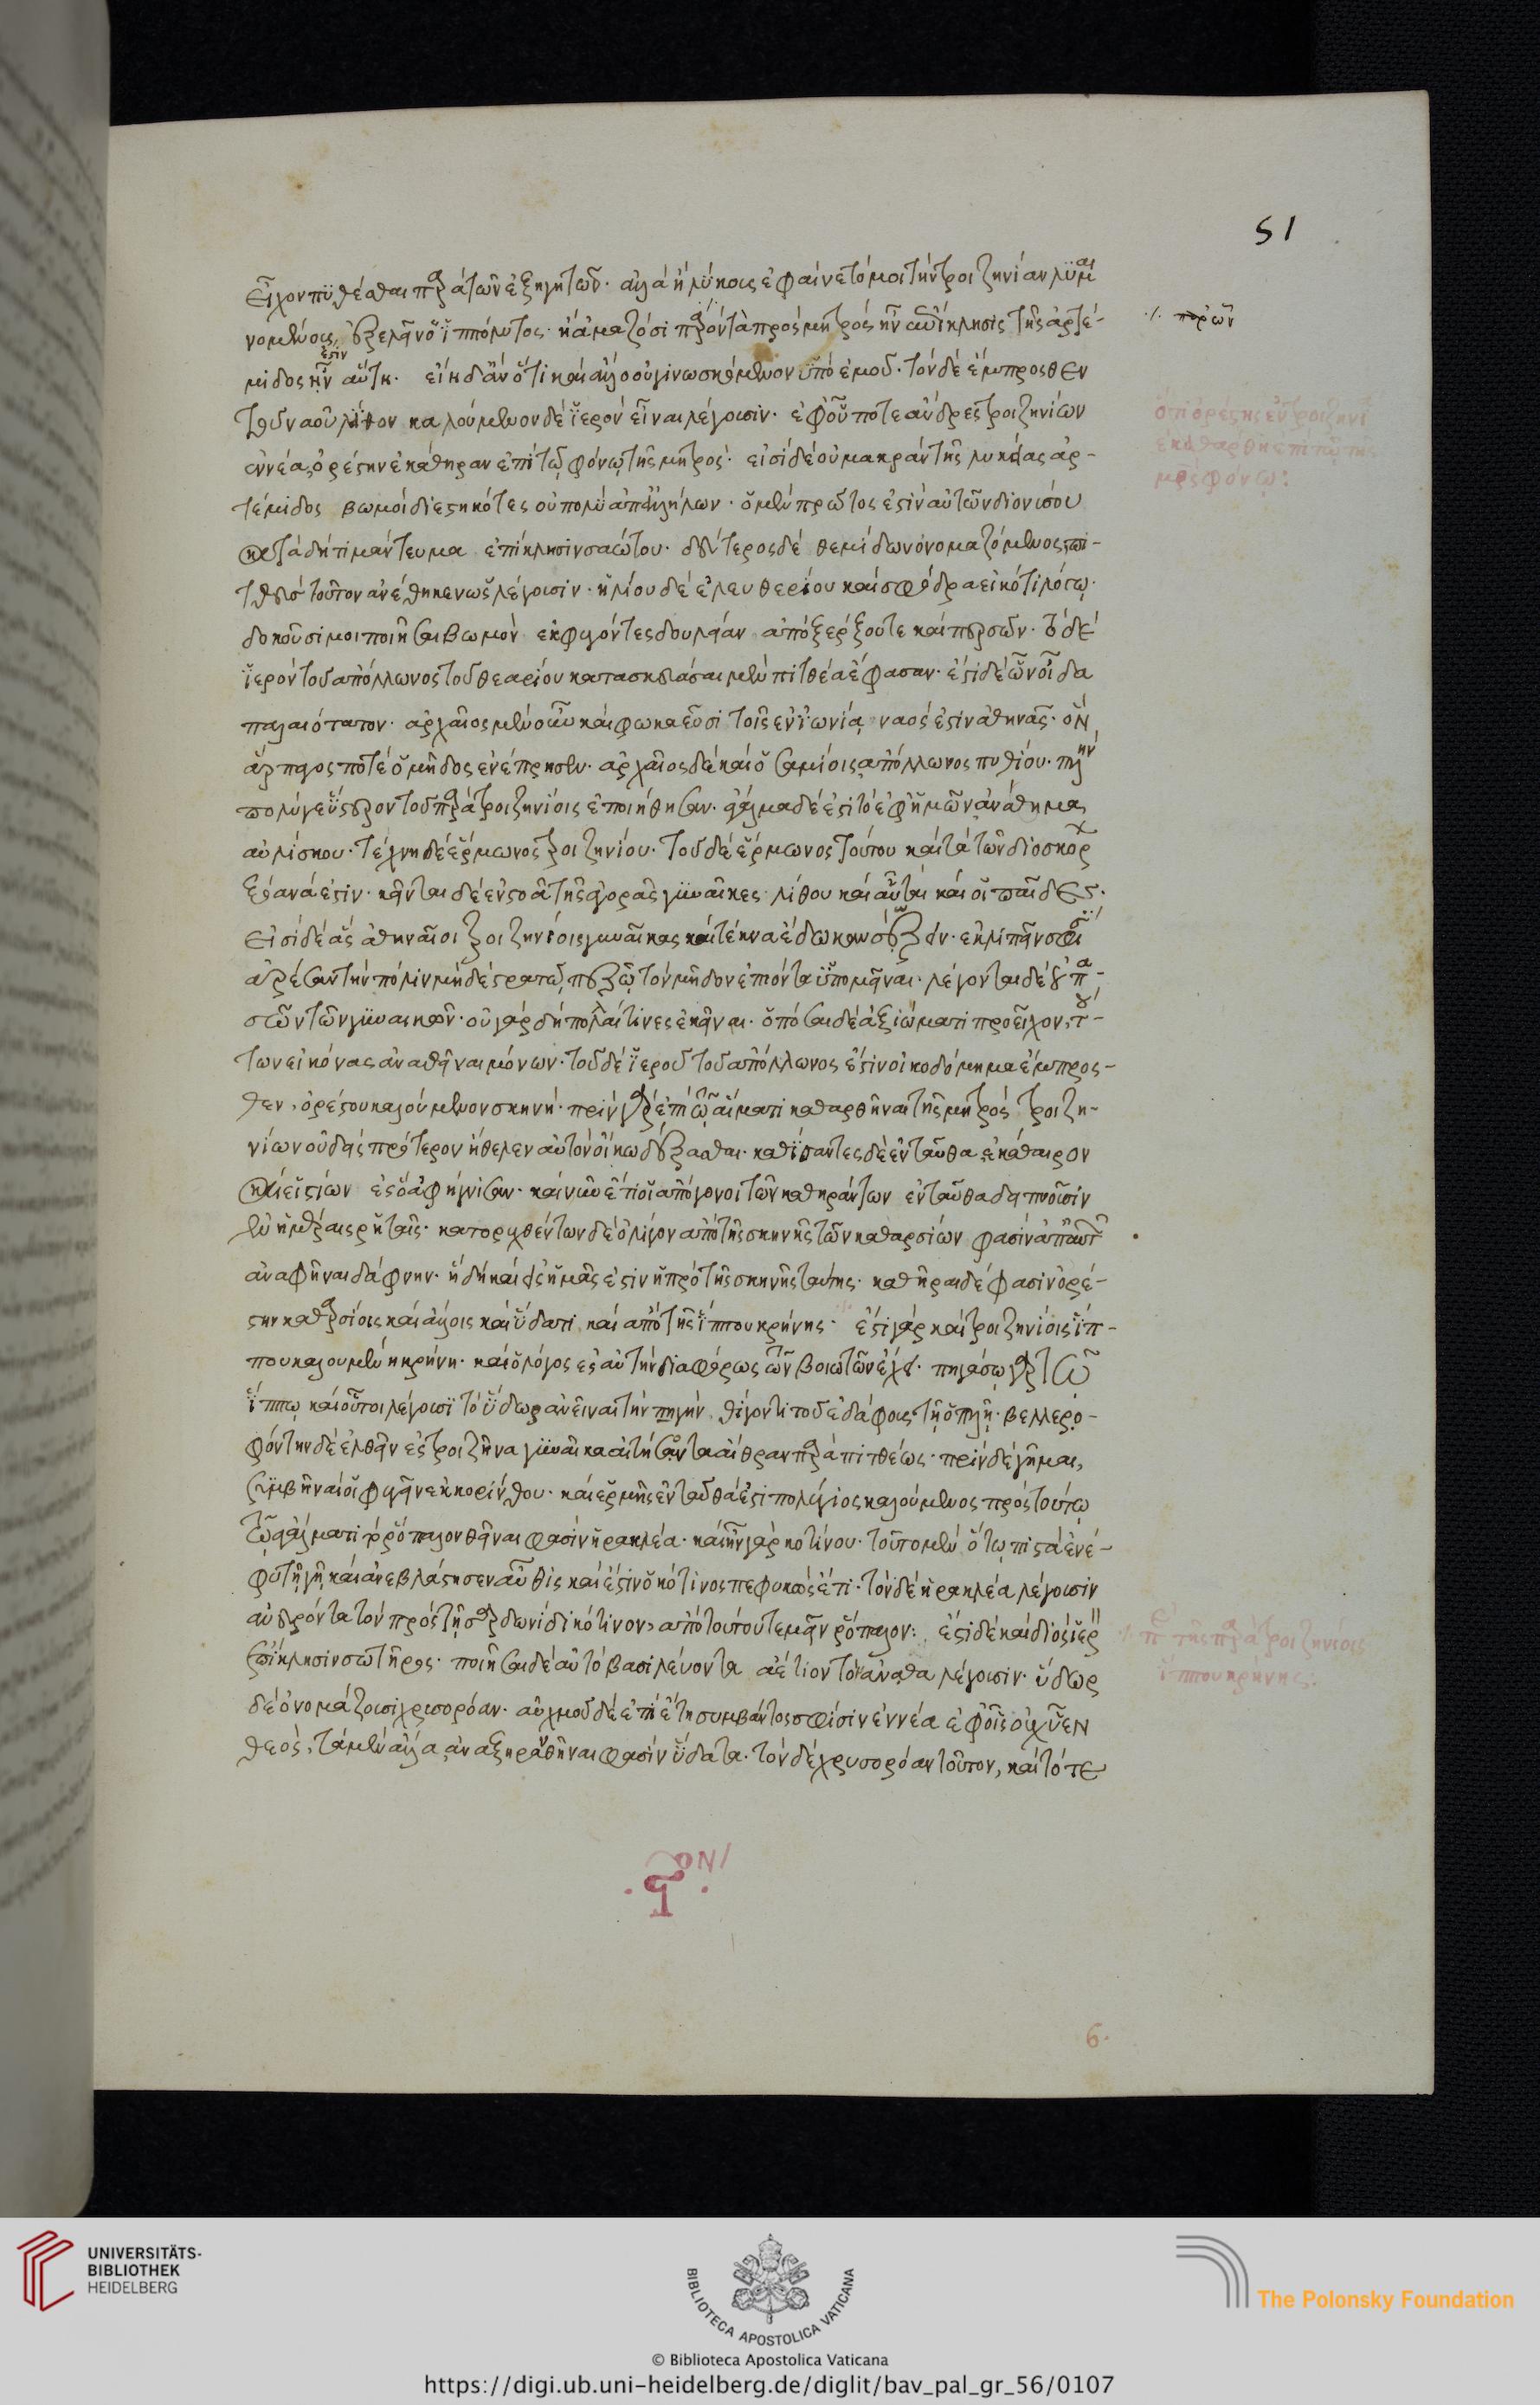 εἶχον πυθέσθαι παρὰ τῶν ἐξηγητῶν· ἀλλὰ ἢ λύκοις ἐφαίνετό μοι τὴν τροιζηνίαν λυμαι
νομένοις, ἐξελεῖν ὁ ἱππόλυτος· ἢ ἀμαζόσι παρόντὰ πρὸς μητρὸς ἦν ἐπίκλησις τῆς ἀρτέ-
ἐστιν
μιδος ἦν αὕτη· εἴη δ' ἂν ὅτι καὶ ἄλλο οὐ γινωσκόμενον ὑπὸ ἐμοῦ· τὸν δὲ ἔμπροσθεν
τοῦ ναοῦ λίθον καλούμενον δὲ ἱερὸν εἶναι λέγουσιν· ἐφ' οὗ ποτε ἄνδρες τροιζηνίων
ἐννέα, ὀρέστην ἐκάθηραν ἐπὶ τῷ φόνῳ τῆς μητρός· εἰσὶ δὲ οὐ μακρὰν τῆς λυκείας ἀρ-
τέμιδος βωμοὶ διεστηκότες οὐ πολὺ ἀπ' ἀλλήλων· ὁ μὲν πρῶτος ἐστὶν αὐτῶν διονίσου
κατὰ δή τι μάντευμα ἐπίκλησιν σαώτου· δεύτερος δὲ θεμίδων ὀνομαζόμενος, πι-
τθεὺς τοῦτον ἀνέθηκεν ὡς λέγουσιν· ἡλίου δὲ ἐλευθερίου καὶ σφόδρα εἰκότι λόγῳ·
δοκοῦσί μοι ποιῆσαι βωμὸν ἐκφυγόντες δουλείαν ἀπὸ ξέρξου τε καὶ περσῶν· τὸ δὲ
ἱερὸν τοῦ ἀπόλλωνος τοῦ θεαρίου κατασκευάσαι μὲν πιτθέα ἔφασαν· ἔστι δὲ ὧν οἶδα
παλαιότατον· ἀρχαῖος μὲν οὖν καὶ φωκαεῦσι τοῖς ἐν ἰωνίᾳ ναός ἐστιν ἀθηνᾶς· ὃν
ἅρπαγος ποτὲ ὁ μῆδος ἐνέπρησεν· ἀρχαῖος δὲ καὶ ὁ σαμίοις ἀπόλλωνος πυθίου· πλὴν
πολύ γε ὕστερον τοῦ παρὰ τροιζηνίοις ἐποιήθησαν· ἄγαλμα δέ ἐστι τὸ ἐφ' ἡμῶν ἀνάθημα
αὐλίσκου· τέχνη δὲ ἕρμωνος τροιζηνίου· τοῦ δὲ ἕρμωνος τούτου καὶ τὰ τῶν διοσκόρ
ξόανά ἐστιν· κεῖνται δὲ ἐν στοᾶ τῆς ἀγορᾶς γυναῖκες· λίθου καὶ αὗται καὶ οἱ παῖδες·
εἰσὶ δὲ ἃς ἀθηναῖοι τροιζηνίοις γυναῖκας καὶ τέκνα ἔδωκαν σώζειν· ἐκλιπεῖν σφίσιν
ἀρέσαν τὴν πόλιν μηδὲ στρατῷ πεζῷ τὸν μῆδον ἐπιόντα ὑπομεῖναι· λέγονται δὲ οὐ πα-
σῶν τῶν γυναικῶν· οὐ γὰρ δὴ πολλαί τινες ἐκεῖναι· ὁπόσαι δὲ ἀξιώματι προεῖχον, τού-
των εἰκόνας ἀναθεῖναι μόνων· τοῦ δὲ ἱεροῦ τοῦ ἀπόλλωνος ἔστιν οἰκοδόμημα ἔμπροσ-
θεν, ὀρέστου καλούμενον σκηνή· πρὶν γὰρ ἐπὶ τῷ αἵματι καθαρθῆναι τῆς μητρὸς τροιζη-
νίων οὐδεὶς πρότερον ἤθελεν αὐτὸν οἴκω δέξασθαι· καθίσαντες δὲ ἐνταῦθα ἐκάθαιρον
καὶ εἱστίων ἐς ὃ ἀφήγνισαν· καὶ νῦν ἔτι οἱ ἀπόγονοι τῶν καθηράντων ἐνταῦθα δειπνοῦσιν
ἐν ἡμέραις ῥηταῖς· κατορυχθέντων δὲ ὀλίγον ἀπὸ τῆς σκηνῆς τῶν καθαρσίων φασὶν ἀπ' αὐτῶν
ἀναφῆναι δάφνην· ἣ δὴ καὶ ἐς ἡμᾶς ἐστὶν ἡ πρὸ τῆς σκηνῆς ταύτης· καθῆραι δέ φασιν ὀρέ-
στην καθαρσίοις καὶ ἄλλοις καὶ ὕδατι καὶ ἀπὸ τῆς ἵππου κρήνης· ἔστι γὰρ καὶ τροιζηνίοις ἵπ-
που καλουμένη κρήνη· καὶ ὁ λόγος ἐς αὐτὴν διαφόρως τῶν βοιωτῶν ἔχει· πηγάσῳ γὰρ τῷ
ἵππῳ καὶ οὗτοι λέγουσι τὸ ὕδωρ ἀνεῖναι τὴν πηγήν, θίγοντι τοῦ ἐδάφους τῇ ὁπλῇ· βελλερο-
φόντην δὲ ἐλθεῖν ἐς τροιζῆνα γυναῖκα αἰτήσαντα αἴθραν παρὰ πιτθέως· πρὶν δὲ γῆμαι,
συμβῆναί οἱ φυγεῖν ἐκ κορίνθου· καὶ ἑρμῆς ἐνταῦθά ἐστι πολύγιος καλούμενος πρὸς τούτῳ
τῷ ἀγάλματι τὸ ῥόπαλον θεῖναι φασὶν ἡρακλέα· καὶ ἦν γὰρ κοτίνου· τοῦτο μὲν ὅτῳ πιστὰ ἐνέ-
φυ τῇ γῇ καὶ ἀνεβλάστησεν αὖθις καὶ ἔστιν ὁ κότινος πεφυκὼς ἔτι· τὸν δὲ ἡρακλέα λέγουσιν
ἀνευρόντα τὸν πρὸς τῇ σαρωνίδι κότινον, ἀπὸ τούτου τεμεῖν ῥόπαλον:. ἔστι δὲ καὶ διὸς ἱερὸν
ἐπίκλησιν σωτῆρος· ποιῆσαι δὲ αὐτὸ βασιλεύοντα ἀέτιον τὸν ἄναθα λέγουσιν· ὕδωρ
δὲ ὀνομάζουσι χρυσορόαν· αὐχμοῦ δὲ ἐπὶ ἔτη συμβάντος σφίσιν ἐννέα ἐφ' οἷς οὐχ ὗεν
θεὸς, τὰ μὲν ἄλλα ἀναξηρανθῆναι φασὶν ὕδατα· τὸν δὲ χρυσορόαν τοῦτον, καὶ τότε
51
·/. παρ' ὧν
ὅτι ὀρέστης ἐν τροιζῆνι
ἐκαθάρθη ἐπὶ τῷ τῆς
μρ̅ς φόνῳ:
περὶ τῆς παρὰ τροιζηνίοις
ἵππου κρήνης:
6·
UNIVERSITÄTS-
BIBLIOTHEK
HEIDELBERG
BIBLIOTECA APOSTOLICA VATICANA
The Polonsky Foundation
© Biblioteca Apostolica Vaticana
https://digi.ub.uni-heidelberg.de/diglit/bav_pal_gr_56/0107